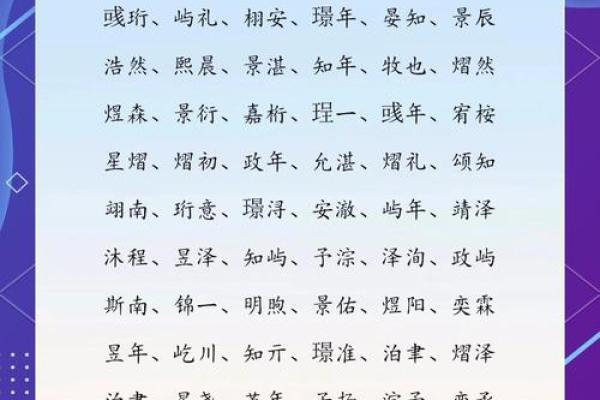 彧珩、屿礼、栩安、璟年、晏知、景辰
浩然、熙晨、景湛、知年、牧也、熠然
煜森、景衍、嘉桁、珵一、彧年、宥桉
星熠、熠初、政年、允湛、熠礼、颂知
翊南、珩意、璟浔、安澈、屿年、靖泽
沐程、昱泽、知屿、予淙、泽洵、政屿
斯南、锦一、明煦、景佑、煜阳、奕霖
昱年、屹川、知亓、璟准、泊聿、熠泽